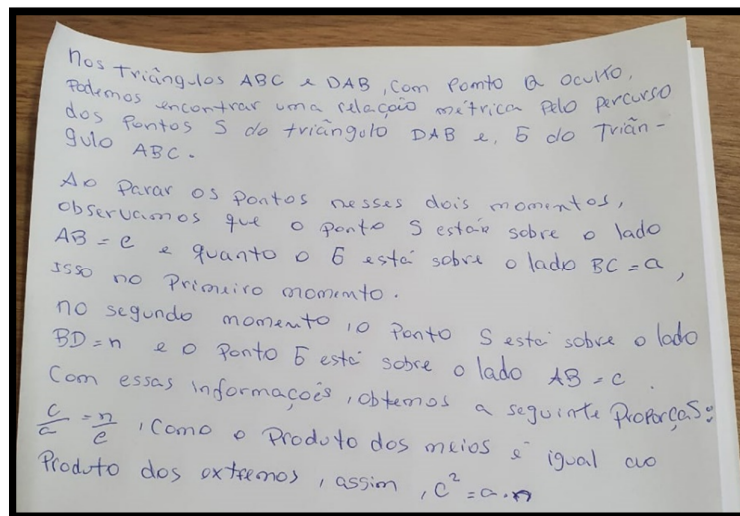 Nos triângulos ABC e DAB, com ponto Q oculto,
Podemos encontrar uma relação métrica pelo percurso
dos pontos S do triângulo DAB e, E do Triân-
gulo ABC.
Ao Parar os pontos nesses dois momentos,
observamos que o ponto S está sobre o lado
AB = c e quanto o E está sobre o lado BC = a,
Isso no Primeiro momento.
no segundo momento, o Ponto S está sobre o lado
BD = n e o Ponto E está sobre o lado AB = c.
Com essas informações, obtemos a seguinte Proporção:
c/a = n/c, Como o Produto dos meios é igual ao
Produto dos extremos, assim, c² = a.n